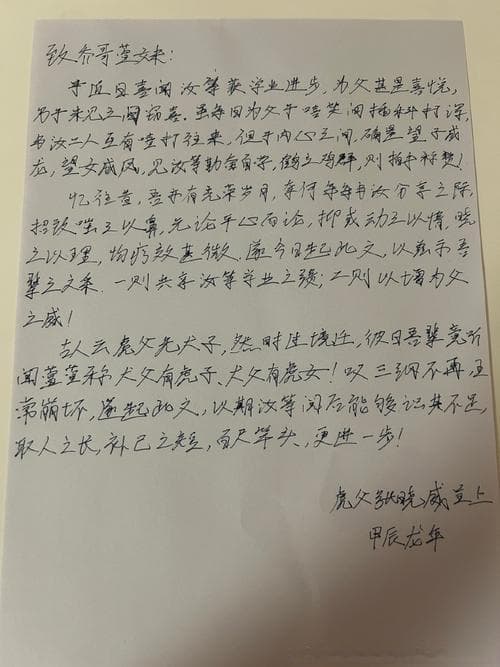 致乔哥萱妹：
于近日喜闻汝等获学业进步，为父甚是喜悦，
另于未见之间窃喜。虽每日为父于嘻笑间插科打诨，
与汝二人互有嘻打往来，但于内心之间，确是望子成
龙，望女成凤，见汝等勤奋自学，鹤立鸡群，则拍手称赞！
忆往昔，吾亦有光荣岁月，奈何每每与汝分享之际，
招致嗤之以鼻，无论平心而论，抑或动之以情，晓
之以理，均疗效甚微。遂今日起此文，以展示吾
辈之文采。一则共享汝等学业之强；二则以增为父
之威！
古人云虎父无犬子，然时过境迁，彼日吾辈竟听
闻萱萱称犬父有虎子、犬父有虎女！叹三纲不再，五
常崩坏，遂起此文，以期汝等阅后能够识其不足，
取人之长，补己之短，百尺竿头，更进一步！
虎父张晓威呈上
甲辰龙年